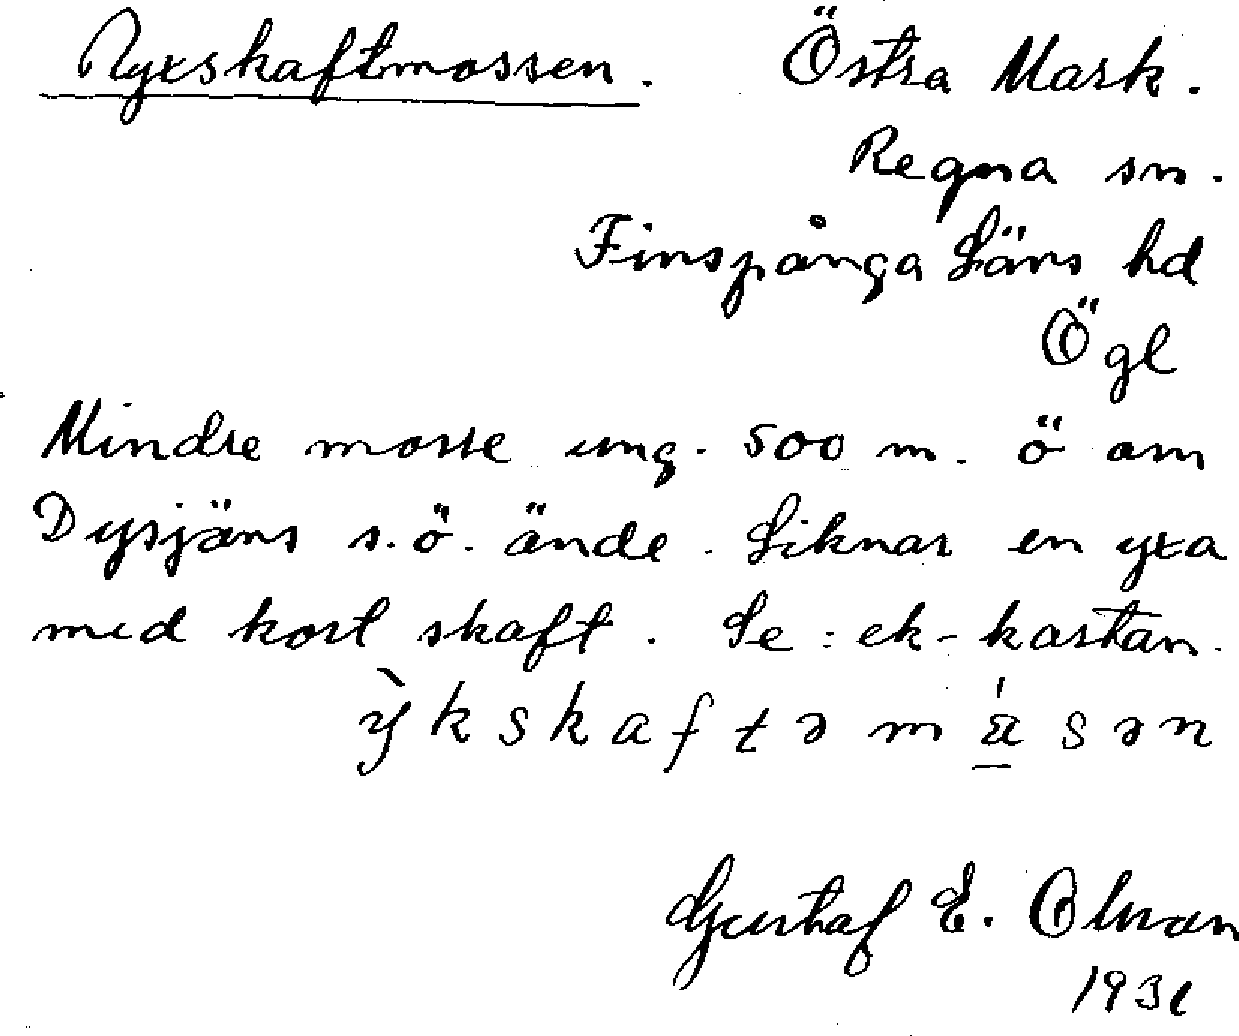 Yxskaftmossen. Östra Mark.
Regna sn.
Finspånga Läns hd
Ögl
Mindre mosse ung. 500 m. ö om
Dysjöns s.ö. ände. Liknar en yxa
med kort skaft. Se: ek-kastan.
ỳkskaftəmåsən
Gustaf E.
1931